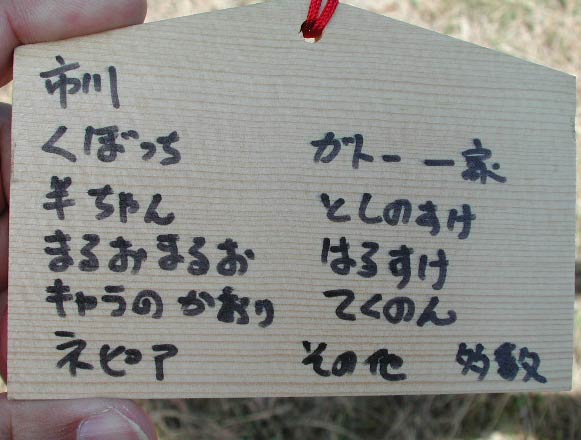 市川
くぼっち
羊ちゃん
まるおまるお
キャラのかおり
ネピア
ガトー一家
としのすけ
はるすけ
てくのん
その他 多数